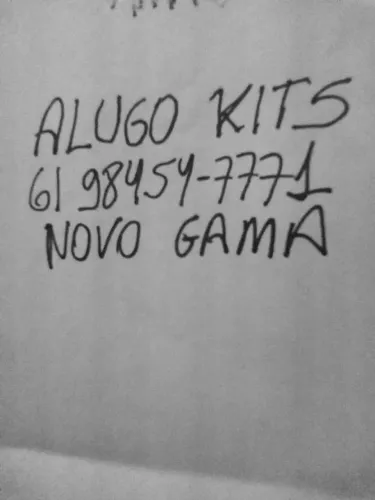 ALUGO KITS
61 98454-7771
NOVO GAMA